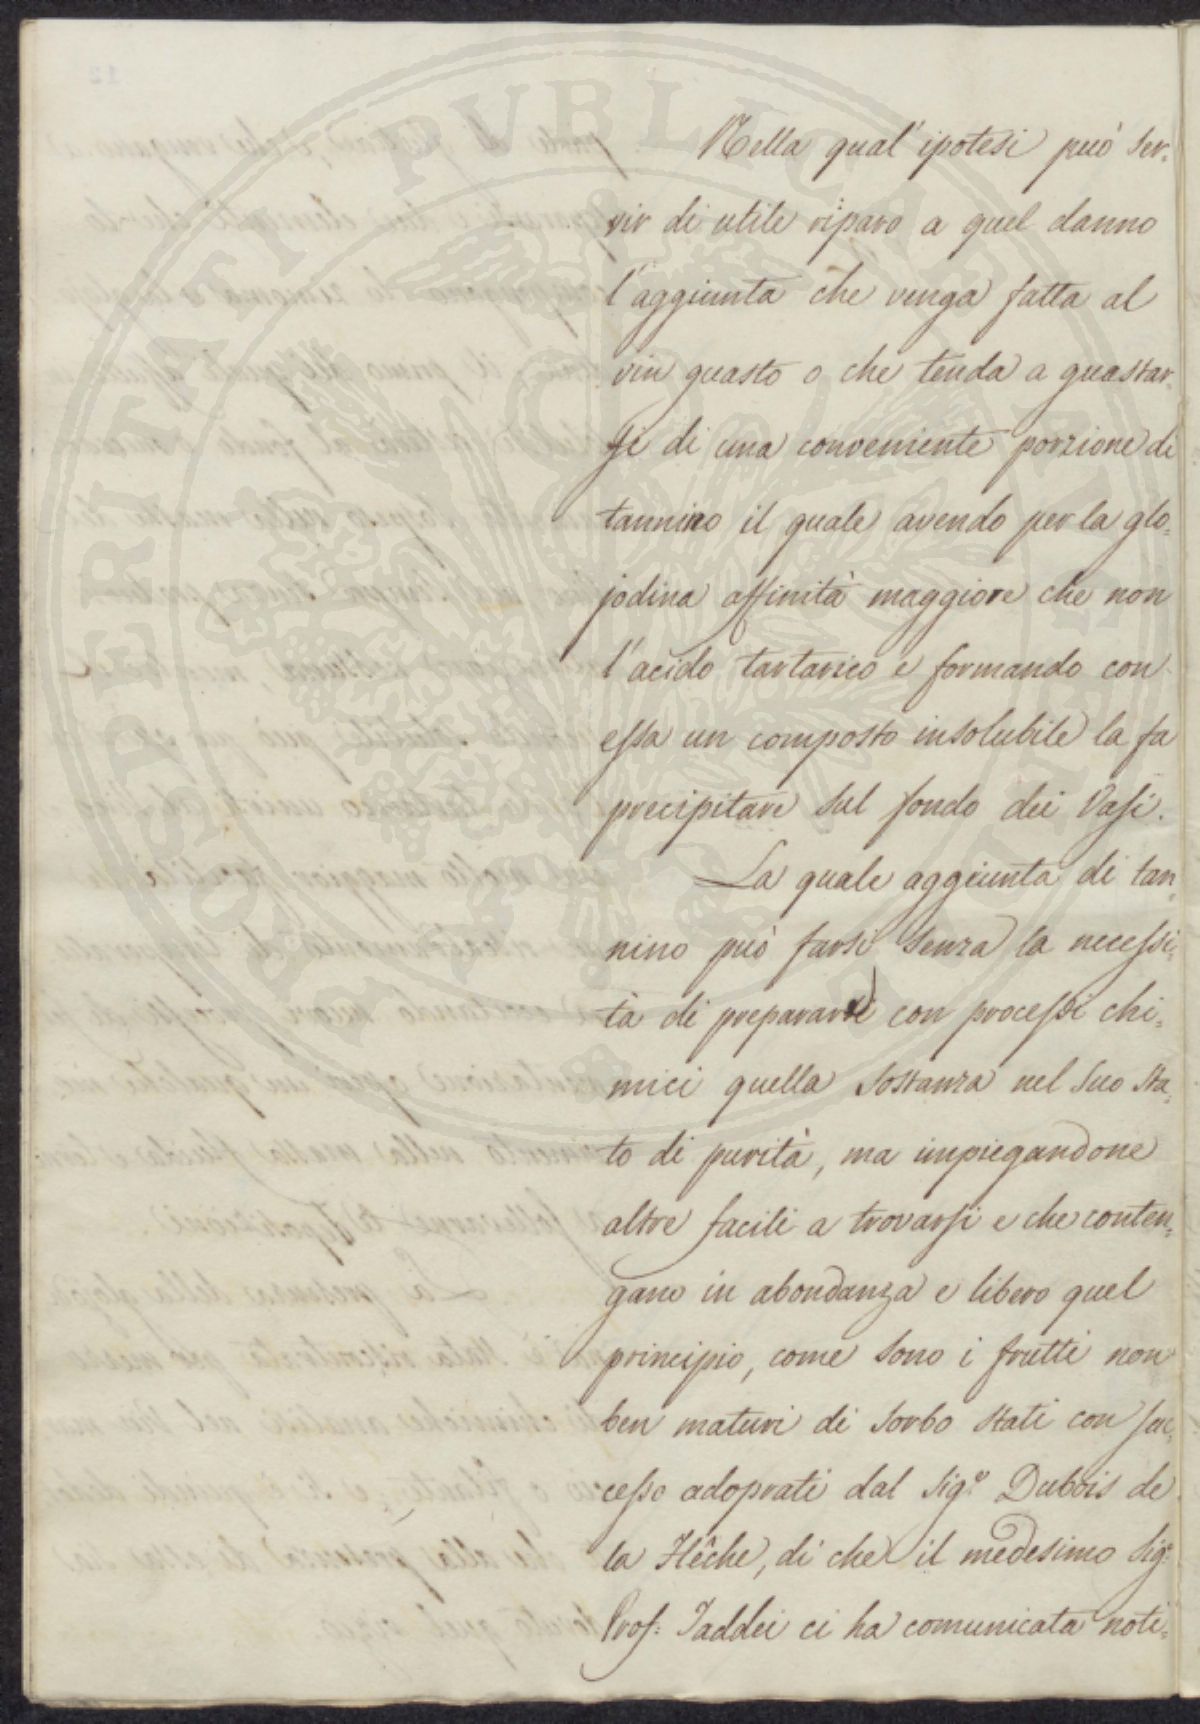 Nella qual' ipotesi può ser=
vir di utile riparo a quel danno
l'aggiunta che venga fatta al
vin guasto o che tenda a guastar=
si di una conveniente porzione di
tannino il quale avendo per la glo=
jodina affinità maggiore che non
l'acido tartarico e formando con
essa un composto insolubile la fa
precipitare sul fondo dei Vasi.
La quale aggiunta di tan=
nino può farsi senza la necessi=
tà di preparare con processi chi=
mici quella sostanza nel suo sta=
to di purità, ma impiegandone
altre facili a trovarsi e che conten=
gano in abondanza e libero quel
principio, come sono i frutti non
ben maturi di sorbo stati con suc=
cesso adoprati dal Sig.e Dubois de
la Flêche, di che il medesimo Sig:
Prof: Taddei ci ha comunicata noti=